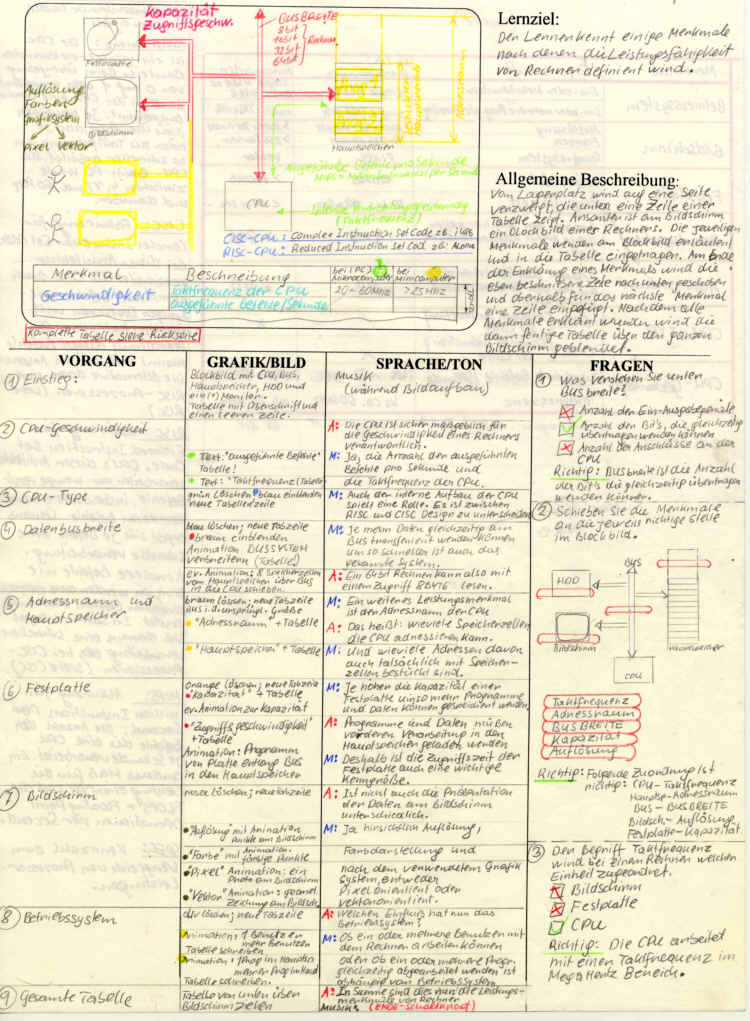 Kapazität
Zugriffsgeschw.
Festplatte
BUSBREITE
8bit
16bit
32bit
64bit
Rechner
Auflösung
Farben
Grafiksystem
Pixel Vektor
Bildschirm
Prog 1
Prog 2
Hauptspeicher
Adressraum
CPU
CISC-CPU: Complex Instruction Set Code z.B. i486
RISC-CPU: Reduced Instruction Set Cod. z.B. ALPHA
Merkmal
Beschreibung
bei (PC)
Mikrocomputer
bei
Minicomputer
Geschwindigkeit
Taktfrequenz der CPU
ausgeführte Befehle/Sekunde
20-60MHz
>25MHz
Komplette Tabelle siehe Rückseite
Lernziel:
Der Lernen kennt einige Merkmale
nach denen die Leistungsfähigkeit
von Rechnern definiert wird.
Allgemeine Beschreibung:
Vom Lagerplatz wird auf eine Seite
verzweigt, die unten eine Zeile einer
Tabelle zeigt. Ansonsten ist am Bildschirm
ein Blockbild eines Rechners. Die jeweiligen
Merkmale werden am Blockbild erläutert
und in die Tabelle eingetragen. Am Ende
der Erklärung eines Merkmals wird die
eben beschriebene Zeile nach unten geschoben
und oberhalb für das nächste Merkmal
eine Zeile eingefügt. Nachdem alle
Merkmale erklärt wurden wird die
dann fertige Tabelle über den ganzen
Bildschirm geblendet.
VORGANG
GRAFIK/BILD
SPRACHE/TON
FRAGEN
① Einstieg:
Blockbild mit CPU, Bus,
Hauptspeicher, HDD und
ein(n) Monitor.
Tabelle mit Überschrift und
einen leeren Zeile.
Musik
(während Bildaufbau)
② CPU-Geschwindigkeit
Text: "ausgeführte Befehle"
Tabelle!
Text: "Taktfrequenz (Tabelle)
A: Die CPU ist sicher maßgeblich für
die Geschwindigkeit eines Rechners
verantwortlich.
M: Ja, die Anzahl der ausgeführten
Befehle pro Sekunde und
die Taktfrequenz der CPU.
③ CPU-Type
grün löschen, blau einblenden
neue Tabellezeile
M: Auch der interne Aufbau der CPU
spielt eine Rolle. Es ist zwischen
RISC und CISC Design zu unterscheiden
④ Datenbusbreite
blau löschen; neue Tabzeile
braun einblenden
Animation BUSSYSTEM
verbreitern (Tabelle)
ev. Animation; 8 Speicherzellen
von Hauptspeicher über Bus
in die CPU schieben.
M: Je mehr Daten gleichzeitig am
Bus transferiert werden können
um so schneller ist auch das
gesamte System.
A: Ein 64bit Rechner kann also mit
einem Zugriff 8BYTE lesen.
⑤ Adressraum und
Hauptspeicher
braun löschen; neue Tabzeile
Bus i.d. ursprüngl. Größe
"Adressraum" + Tabelle
"Hauptspeicher" + Tabelle
M: Ein weiteres Leistungsmerkmal
ist der Adressraum der CPU
A: Das heißt: wieviele Speicherzellen
die CPU adressieren kann.
M: Und wieviele Adressen davon
auch tatsächlich mit Speicher-
zellen bestückt sind.
⑥ Festplatte
orange löschen; neue Tabzeile
"Kapazität" + Tabelle
ev. Animation zur Kapazität
"Zugriffsgeschwindigkeit"
+ Tabelle
Animation: Programm
von Platte entlang Bus
in den Hauptspeicher
M: Je höher die Kapazität einer
Festplatte umso mehr Programme
und Daten können gespeichert werden
A: Programme und Daten müßen
vor deren Verarbeitung in den
Hauptspeicher geladen werden
M: Deshalb ist die Zugriffszeit der
Festplatte auch eine wichtige
Kenngröße.
⑦ Bildschirm
rosa löschen; neue Tabzeile
"Auflösung" mit Animation
Punkte am Bildschirm
"Farbe" mit Animation.
färbige Punkte
"Pixel" Animation: ein
Photo am Bildschirm
"Vektor" Animation: geomet.
Zeichnung am Bildsch.
A: Ist nicht auch die Präsentation
der Daten am Bildschirm
unterschiedlich.
M: Ja hinsichtlich Auflösung,
Farbdarstellung und
nach dem verwendeten Grafik
System, entweder
pixelorientiert oder
vektororientiert.
⑧ Betriebssystem
oliv löschen; neue Tabzeile
Animation: 1 Benutzer
mehr Benutzer
Tabelle schreiben.
Animation: 1 Prog im Haupts.
mehrer Prog im Haupt
Tabelle schreiben.
A: Welchen Einfluß hat nun das
Betriebssystem?
M: Ob ein oder mehrere Benutzer mit
dem Rechner arbeiten können
oder ob ein oder mehrere Progr.
gleichzeitig abgearbeitet werden ist
abhängig vom Betriebssystem
⑨ Gesamte Tabelle
Tabelle von unten über
Bildschirm ziehen
A: In Summe sind dies nun die Leistungs-
merkmale von Rechner
Musik: (ENDE-Schaltknopf)
① Was verstehen Sie unter
Busbreite?
Anzahl der Ein-Ausgabegeräte
Anzahl der Bit's, die gleichzeitig
übertragen werden können
Anzahl der Anschlüsse an der
CPU
Richtig: BUSbreite ist die Anzahl
der Bit's die gleichzeitig übertragen
werden können.
② Schieben Sie die Merkmale
an die jeweils richtige Stelle
im Blockbild.
BUS
HDD
Bildschirm
Hauptspeicher
CPU
Taktfrequenz
Adressraum
BUSBREITE
Kapazität
Auflösung
Richtig: Folgende Zuordnung ist
richtig: CPU-Taktfrequenz
Hauptsp-Adressraum
BUS-BUSBREITE
Bildsch-Auflösung
Festplatte-Kapazität
③ Den Begriff Taktfrequenz
wird bei einem Rechner welcher
Einheit zugeordnet.
Bildschirm
Festplatte
CPU
Richtig: Die CPU arbeitet
mit einer Taktfrequenz im
MegaHertz Bereich.